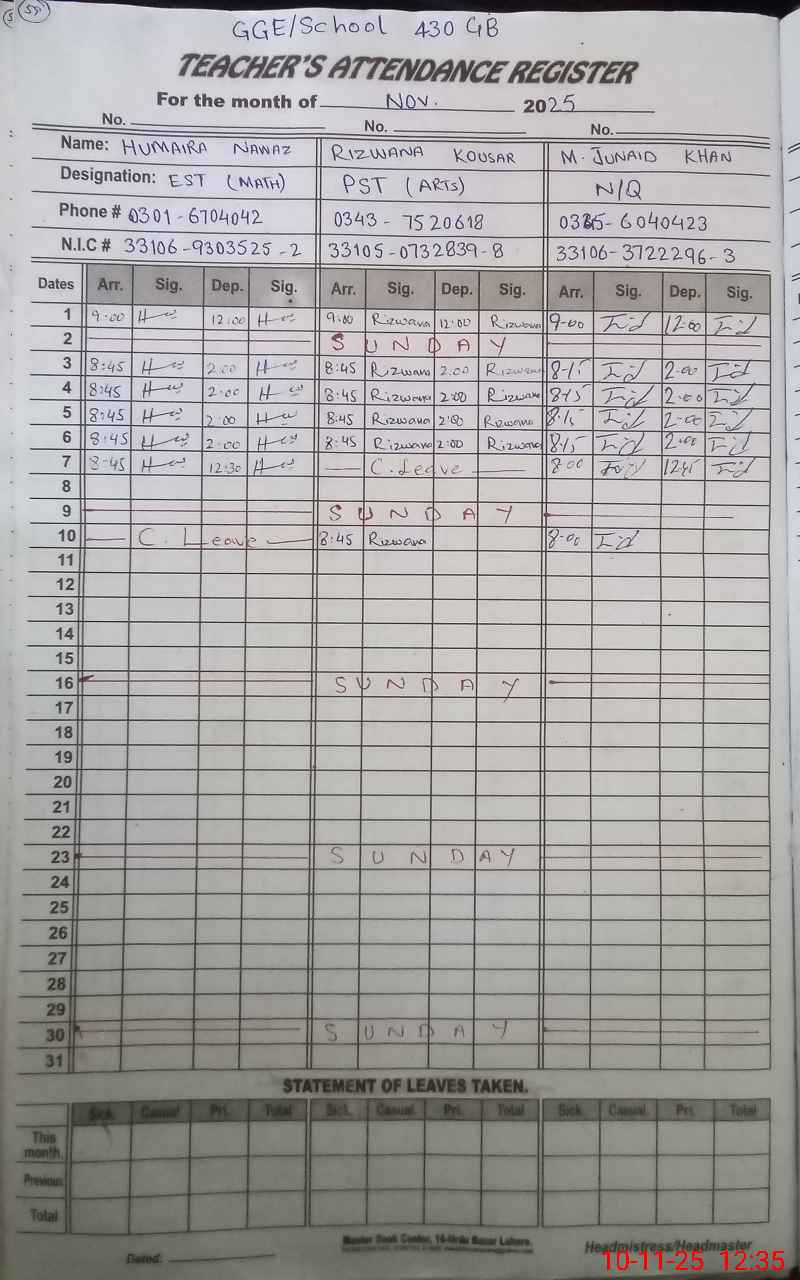 55
GGE/School 430 GB
TEACHER'S ATTENDANCE REGISTER
For the month of NOV. 2025
No. No. No.
Name: HUMAIRA NAWAZ RIZWANA KOUSAR M. JUNAID KHAN
Designation: EST (MATH) PST (ARTS) N/Q
Phone # 0301-6704042 0343-7520618 0335-6040423
N.I.C # 33106-9303525-2 33105-0732839-8 33106-3722296-3
Dates Arr. Sig. Dep. Sig. Arr. Sig. Dep. Sig. Arr. Sig. Dep. Sig.
1 9:00 12:00 9:00 Rizwana 12:00 Rizwana 9-00 12:00
2 SUNDAY
3 8:45 2:00 8:45 Rizwana 2:00 Rizwana 8-15 2-00
4 8:45 2:00 8:45 Rizwana 2:00 Rizwana 8-15 2-00
5 8:45 2:00 8:45 Rizwana 2:00 Rizwana 8-15 2-00
6 8:45 2:00 8:45 Rizwana 2:00 Rizwana 8-15 2-00
7 8-45 12:30 C.Leave 8-00 1245
8
9 SUNDAY
10 C. Leave 8:45 Rizwana 8-00
11
12
13
14
15
16 SUNDAY
17
18
19
20
21
22
23 SUNDAY
24
25
26
27
28
29
30 SUNDAY
31
STATEMENT OF LEAVES TAKEN.
Sick Casual Pri. Total Sick. Casual. Pri. Total Sick Casual. Pri. Total
This month.
Previous
Total
Master Book Center, 16-Urdu Bazar Lahore.
Dated: Headmistress/Headmaster
10-11-25 12:35